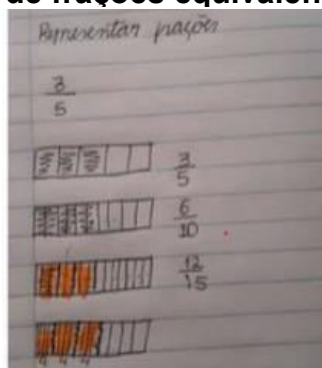 de frações equivalen
Representar frações
3/5
3/5
6/10
12/15
4 4 4